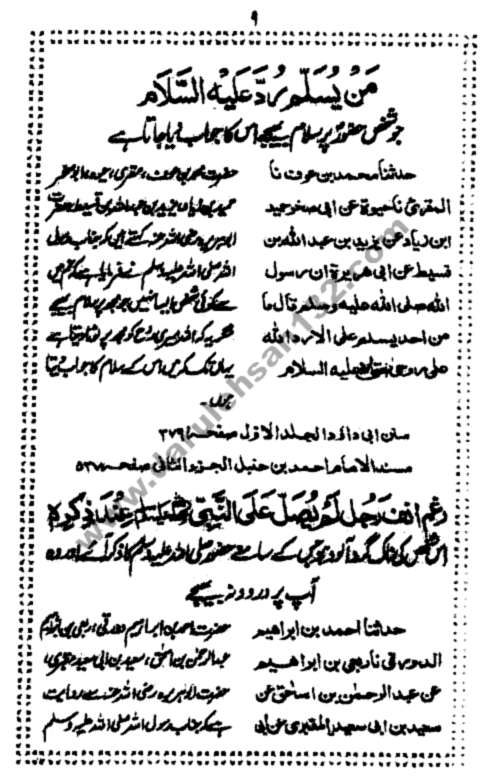 ٩
مَنْ يُسَلِّم رُدَّ عَلَيْهِ السَّلَام
جو شخص حضورؐ پر سلام بھیجے اس کا جواب دیا جاتا ہے
حدثنا محمد بن عوف نا
المقرئ نا حيوة عن ابی صخر حمید
ابن زیاد عن یزید بن عبد الله بن
قسیط عن ابی هریرة ان رسول
الله صلی الله علیه وسلم قال ما
من احد یسلم علی الا رد الله
علی روحی حتی علیه السلام
حضرت محمد بن عوف، مقری، حیوہ، ابو صخر
حمید بن زیاد، یزید بن عبد اللہ بن قسیط حضرت
ابو ہریرہ رضی اللہ عنہ کہتے ہیں کہ جناب رسول
اللہ صلی اللہ علیہ وسلم نے فرمایا ہے کہ تم میں
سے کوئی شخص ایسا نہیں جو مجھ پر سلام بھیجے
مگر یہ کہ اللہ میری روح کو مجھ پر لوٹا دیتا ہے
یہاں تک کہ میں اس کے سلام کا جواب دیتا
ہوں۔
سنن ابی داؤد المجلد الاول صفحہ ٣٧٩
مسند الامام احمد بن حنبل الجزء الثانی صفحہ ٥٣٧
رغم انف رجل لم یصل علی النبی عند ذکره
اس شخص کی ناک گرد آلود ہو جس کے سامنے حضور صلی اللہ علیہ وسلم کا ذکر آئے اور وہ
آپ پر درود نہ بھیجے
حدثنا احمد بن ابراهیم
الدورقی نا ربعی بن ابراهیم
عن عبد الرحمن بن اسحٰق عن
سعید بن ابی سعید المقبری عن ابی
حضرت احمد بن ابراہیم دورقی، ربعی بن ابراہیم
عبد الرحمٰن بن اسحٰق، سعید بن ابی سعید مقبری،
حضرت ابو ہریرہ رضی اللہ عنہ سے روایت
ہے کہ جناب رسول اللہ صلی اللہ علیہ وسلم
www.darulehsan132.com